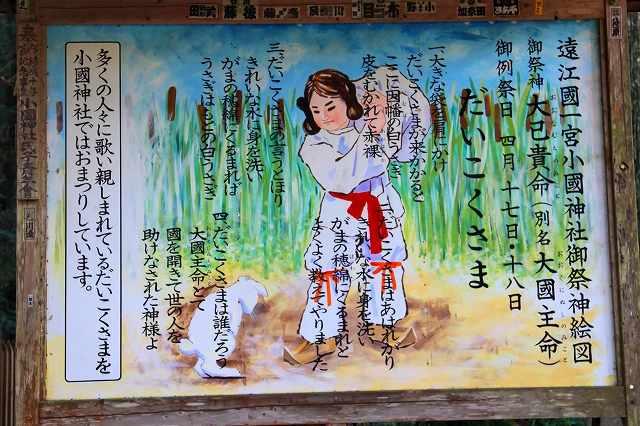 遠江國一宮小國神社御祭神絵図
御祭神 大己貴命(別名 大國主命)
おおなむちのみこと
おおくにぬしのみこと
御例祭日 四月十七日・十八日
だいこくさま
一、大きな袋を肩にかけ
だいこくさまが来かかると
ここに因幡の白うさぎ
皮をむかれて赤裸
二、だいこくさまはあはれがり
きれいな水に身を洗い
がまの穂綿にくるまれと
よくよく教えてやりました
三、だいこくさまの言うとほり
きれいな水に身を洗い
がまの穂綿にくるまれば
うさぎはもとの白うさぎ
四、だいこくさまは誰だろう
大國主命とて
國を開きて世の人を
助けなされた神様よ
多くの人々に歌い親しまれているだいこくさまを
小國神社ではおまつりしています。